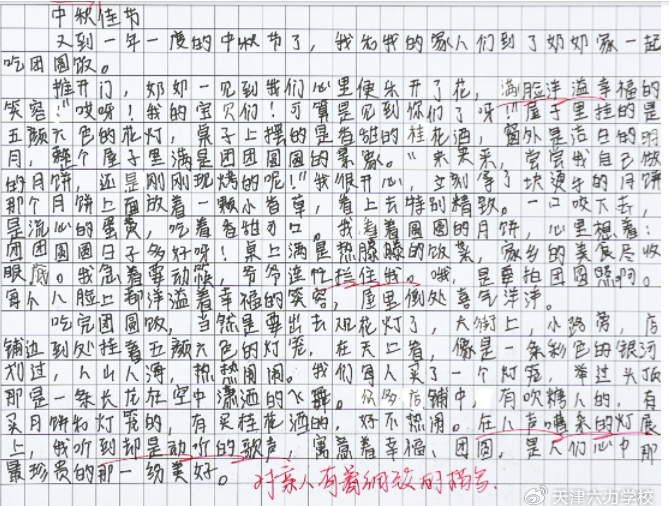 中秋佳节
又到一年一度的中秋节了，我和我的家人们到了奶奶家一起
吃团圆饭。
推开门，奶奶一见到我们心里便乐开了花，满脸洋溢幸福的
笑容！"哎呀！我的宝贝们！可算是见到你们了呀！"屋子里挂的是
五颜六色的花灯，桌子上摆的是香甜的桂花酒，窗外是洁白的明
月，整个屋子里满是团团圆圆的景象。"来来来，尝尝我自己做
的月饼，还是刚刚现烤的呢！"我很开心，立刻拿了块烫手的月饼
那个月饼上面放着一颗小香草，看上去特别精致。一口咬下去，
是流心的蛋黄，吃着香甜可口。我看着圆圆的月饼，心里想着：
团团圆圆日子多好呀！桌上满是热腾腾的饭菜，家乡的美食尽收
眼底。我急着要动筷，爷爷连忙拦住我。哦，是要拍团圆照啊。
每个人脸上都洋溢着幸福的笑容，屋里倒处喜气洋洋。
吃完团圆饭，当然是要出去观花灯了，大街上，小路旁，店
铺边到处挂着五颜六色的灯笼，在天上看，像是一条彩色的银河
划过，人山人海，热热闹闹。我们每人买了一个灯笼，举过头顶
那是一条长龙在空中潇洒的飞舞。店铺中，有吹烤人的，有
买月饼和灯笼的，有买桂花酒的，好不热闹。在人声嘈杂的灯展
上，我听到却是动听的歌声，寓意着幸福、团圆，是人们心中那
最珍贵的那一份美好。
对亲人有着细致的描写.
@天津六力学校